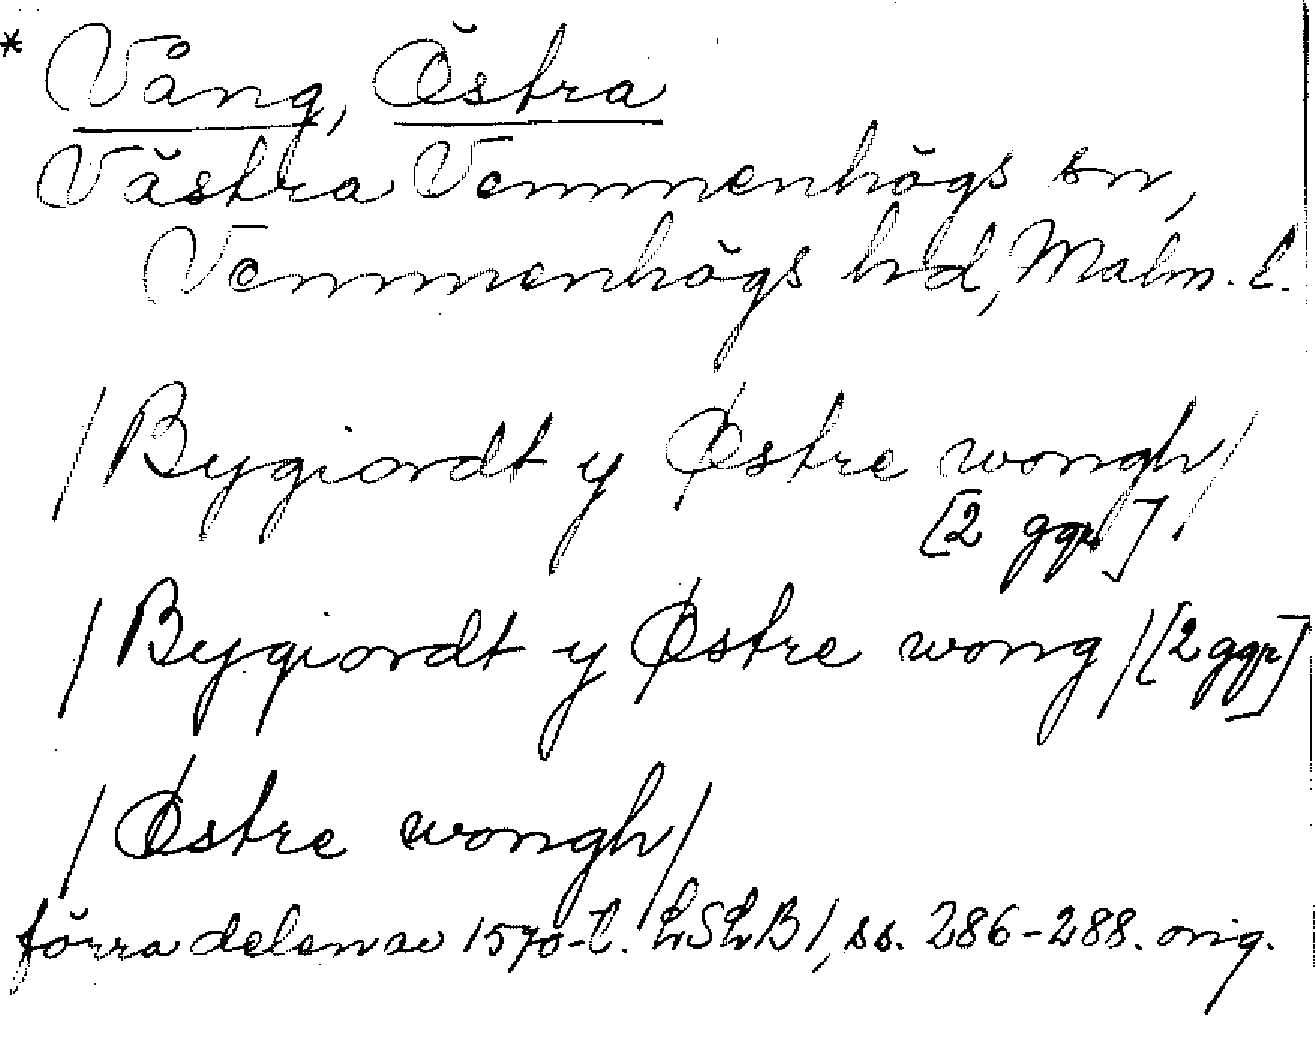 * Vång, Östra
Västra Vemmenhögs sn,
Vemmenhögs hd, Malm. l.
/Bygiordt y Østre wongh/
[2 ggr]
/Bygiordt y Østre wong/[2 ggr]
/Østre wongh/
förra delen av 1570-t. LSLB 1, ss. 286-288. orig.